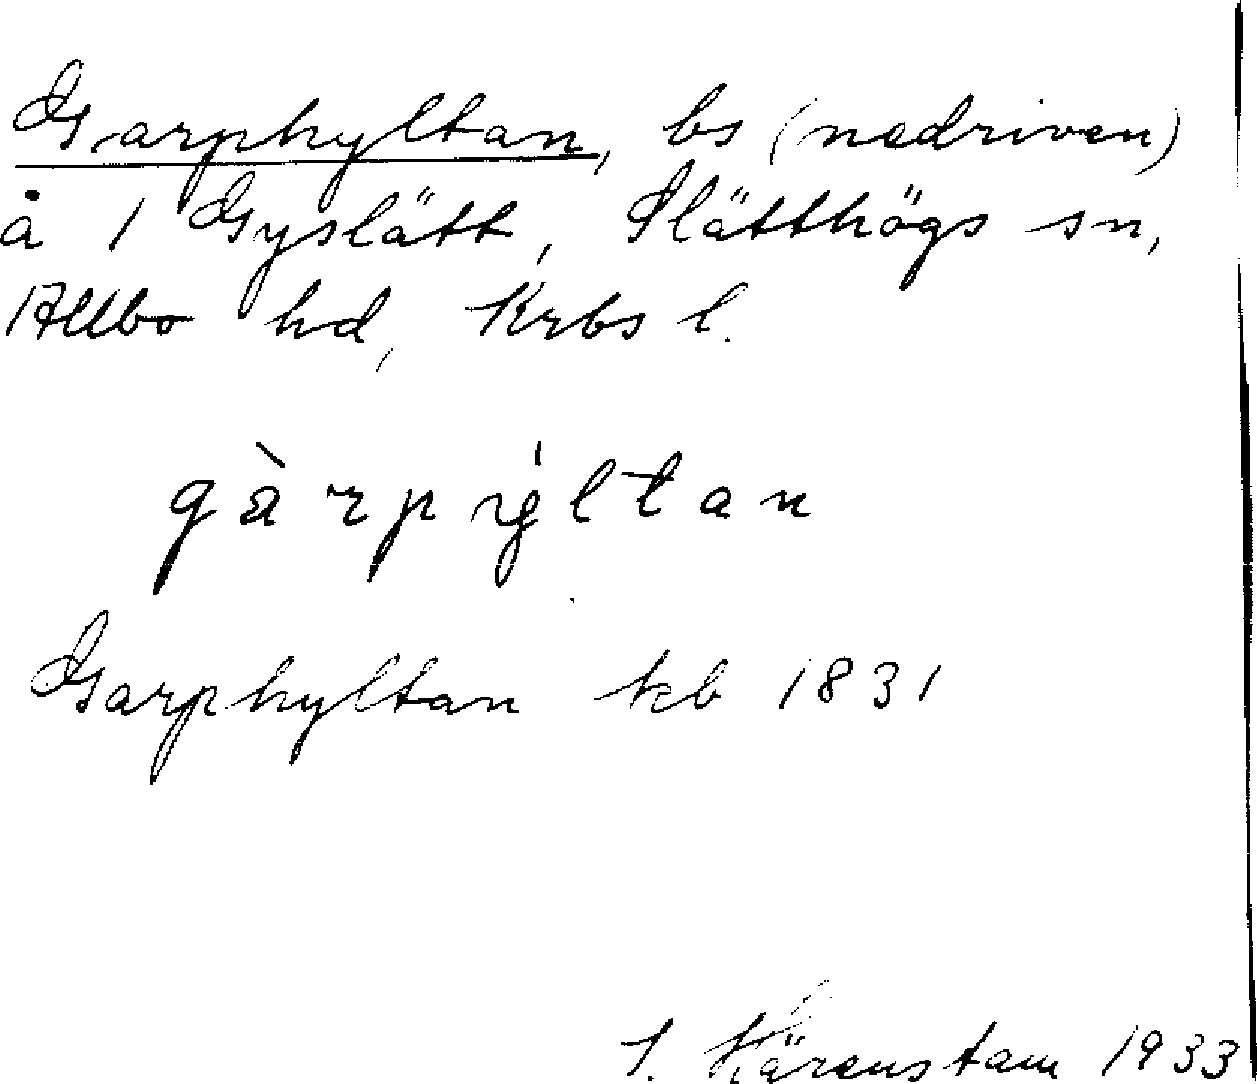 Garphyltan, bs (nedriven)
å 1 Gyslätt, Slätthögs sn,
Allbo hd, Krbs l.
gàrpýltan
Garphyltan kb 1831
1933